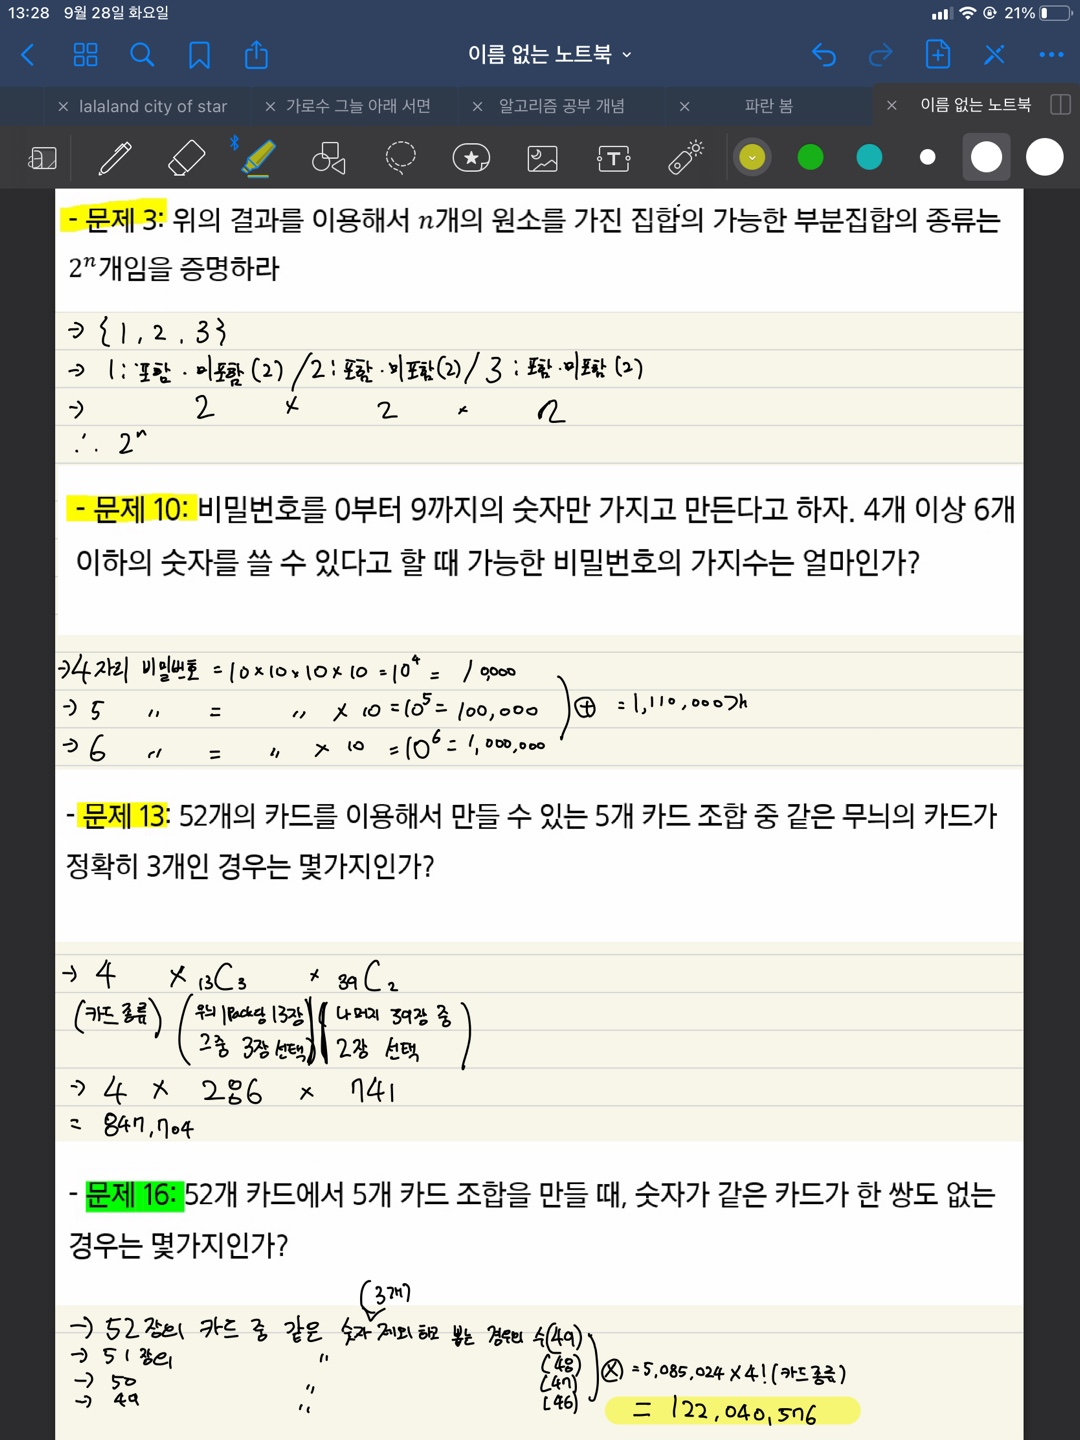 13:28 9월 28일 화요일
21%
이름 없는 노트북
× lalaland city of star × 가로수 그늘 아래 서면 × 알고리즘 공부 개념 × 파란 봄 × 이름 없는 노트북
- 문제 3: 위의 결과를 이용해서 n개의 원소를 가진 집합의 가능한 부분집합의 종류는
2ⁿ개임을 증명하라
→ {1, 2, 3}
→ 1: 포함 · 미포함 (2) / 2: 포함 · 미포함(2) / 3: 포함 · 미포함 (2)
→ 2 × 2 × 2
∴ 2ⁿ
- 문제 10: 비밀번호를 0부터 9까지의 숫자만 가지고 만든다고 하자. 4개 이상 6개
이하의 숫자를 쓸 수 있다고 할 때 가능한 비밀번호의 가지수는 얼마인가?
→ 4자리 비밀번호 = 10×10×10×10 = 10⁴ = 10,000
→ 5 〃 = 〃 × 10 = 10⁵ = 100,000 ⊕ = 1,110,000개
→ 6 〃 = 〃 × 10 = 10⁶ = 1,000,000
- 문제 13: 52개의 카드를 이용해서 만들 수 있는 5개 카드 조합 중 같은 무늬의 카드가
정확히 3개인 경우는 몇가지인가?
→ 4 × ₁₃C₃ × ₃₉C₂
(카드 종류) (무늬 1pack당 13장 (나머지 39장 중
그중 3장 선택) 2장 선택)
→ 4 × 286 × 741
= 847,704
- 문제 16: 52개 카드에서 5개 카드 조합을 만들 때, 숫자가 같은 카드가 한 쌍도 없는
경우는 몇가지인가?
(3개)
→ 52장의 카드 중 같은 숫자 제외 하고 뽑는 경우의 수(49)
→ 51장의 〃 (48)
→ 50 〃 (47)
→ 49 〃 (46)
⊗ = 5,085,024 × 4! (카드종류)
= 122,040,576